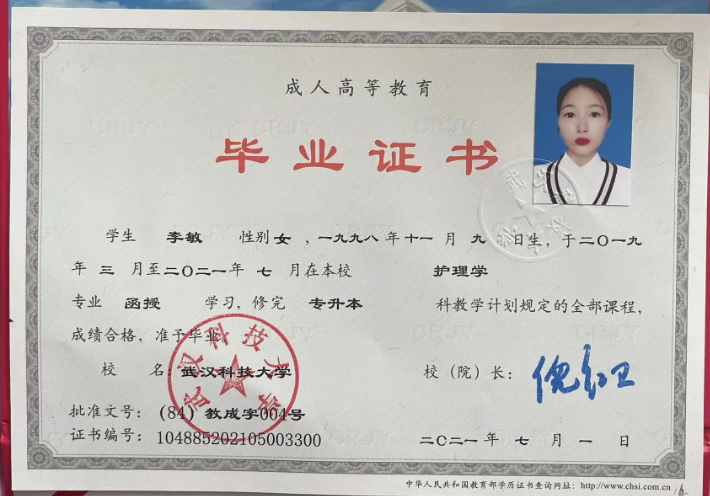 成人高等教育
毕业证书
学生 李敏 性别 女 ,一九九八年 十一 月 九 日生, 于二〇一九
年 三 月至二〇二一年 七 月在本校 护理学
专业 函授 学习, 修完 专升本 科教学计划规定的全部课程,
成绩合格, 准予毕业。
校 名: 武汉科技大学 校(院)长: 倪红卫
武汉科技大学
批准文号: (84) 教成字004号
证书编号: 104885202105003300 二〇二一年 七 月 一 日
中华人民共和国教育部学历证书查询网址: http://www.chsi.com.cn